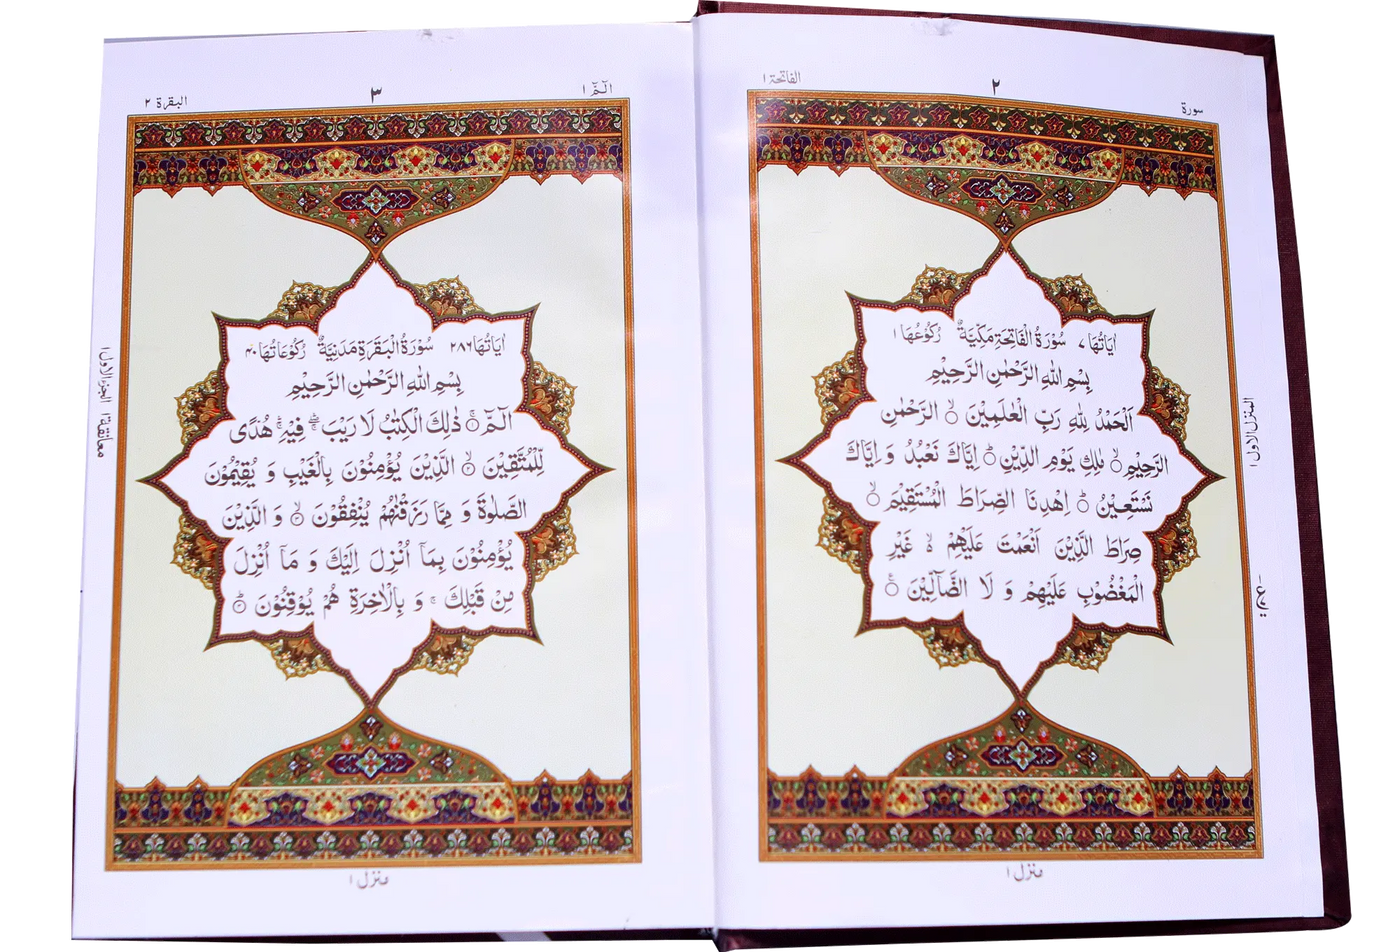 سورة ٢ الفاتحة ١
اٰيَاتُهَا ٧ سُوْرَةُ الْفَاتِحَةِ مَكِّيَّةٌ رُكُوْعُهَا ١
بِسْمِ اللهِ الرَّحْمٰنِ الرَّحِيْمِ
اَلْحَمْدُ لِلّٰهِ رَبِّ الْعٰلَمِيْنَ ۙ الرَّحْمٰنِ
الرَّحِيْمِ ۙ مٰلِكِ يَوْمِ الدِّيْنِ ؕ اِيَّاكَ نَعْبُدُ وَ اِيَّاكَ
نَسْتَعِيْنُ ؕ اِهْدِنَا الصِّرَاطَ الْمُسْتَقِيْمَ ۙ
صِرَاطَ الَّذِيْنَ اَنْعَمْتَ عَلَيْهِمْ ۙ غَيْرِ
الْمَغْضُوْبِ عَلَيْهِمْ وَ لَا الضَّآلِّيْنَ
المنزل الاول ١
منزل ١
الٓمّٓ ١ ٣ البقرة ٢
اٰيَاتُهَا ٢٨٦ سُوْرَةُ الْبَقَرَةِ مَدَنِيَّةٌ رُكُوْعَاتُهَا ٤٠
بِسْمِ اللهِ الرَّحْمٰنِ الرَّحِيْمِ
الٓمّٓ ۚ ذٰلِكَ الْكِتٰبُ لَا رَيْبَ ۛ فِيْهِ ۛ هُدًى
لِّلْمُتَّقِيْنَ ۙ الَّذِيْنَ يُؤْمِنُوْنَ بِالْغَيْبِ وَ يُقِيْمُوْنَ
الصَّلٰوةَ وَ مِمَّا رَزَقْنٰهُمْ يُنْفِقُوْنَ ۙ وَ الَّذِيْنَ
يُؤْمِنُوْنَ بِمَاۤ اُنْزِلَ اِلَيْكَ وَ مَاۤ اُنْزِلَ
مِنْ قَبْلِكَ ۚ وَ بِالْاٰخِرَةِ هُمْ يُوْقِنُوْنَ ؕ
معانقة ١ الجزء الاول ١
منزل ١